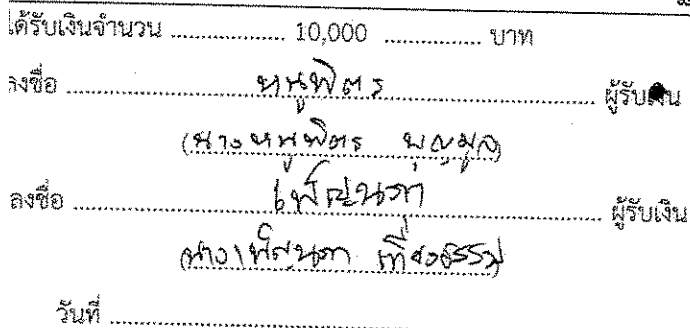 ได้รับเงินจำนวน ................ 10,000 ............... บาท
ลงชื่อ ............ หนูพิตร ............ ผู้รับเงิน
(นางหนูพิตร บุญมูล)
ลงชื่อ ............ เพ็ญนภา ............ ผู้รับเงิน
(นางเพ็ญนภา เที่ยงธรรม)
วันที่ ............